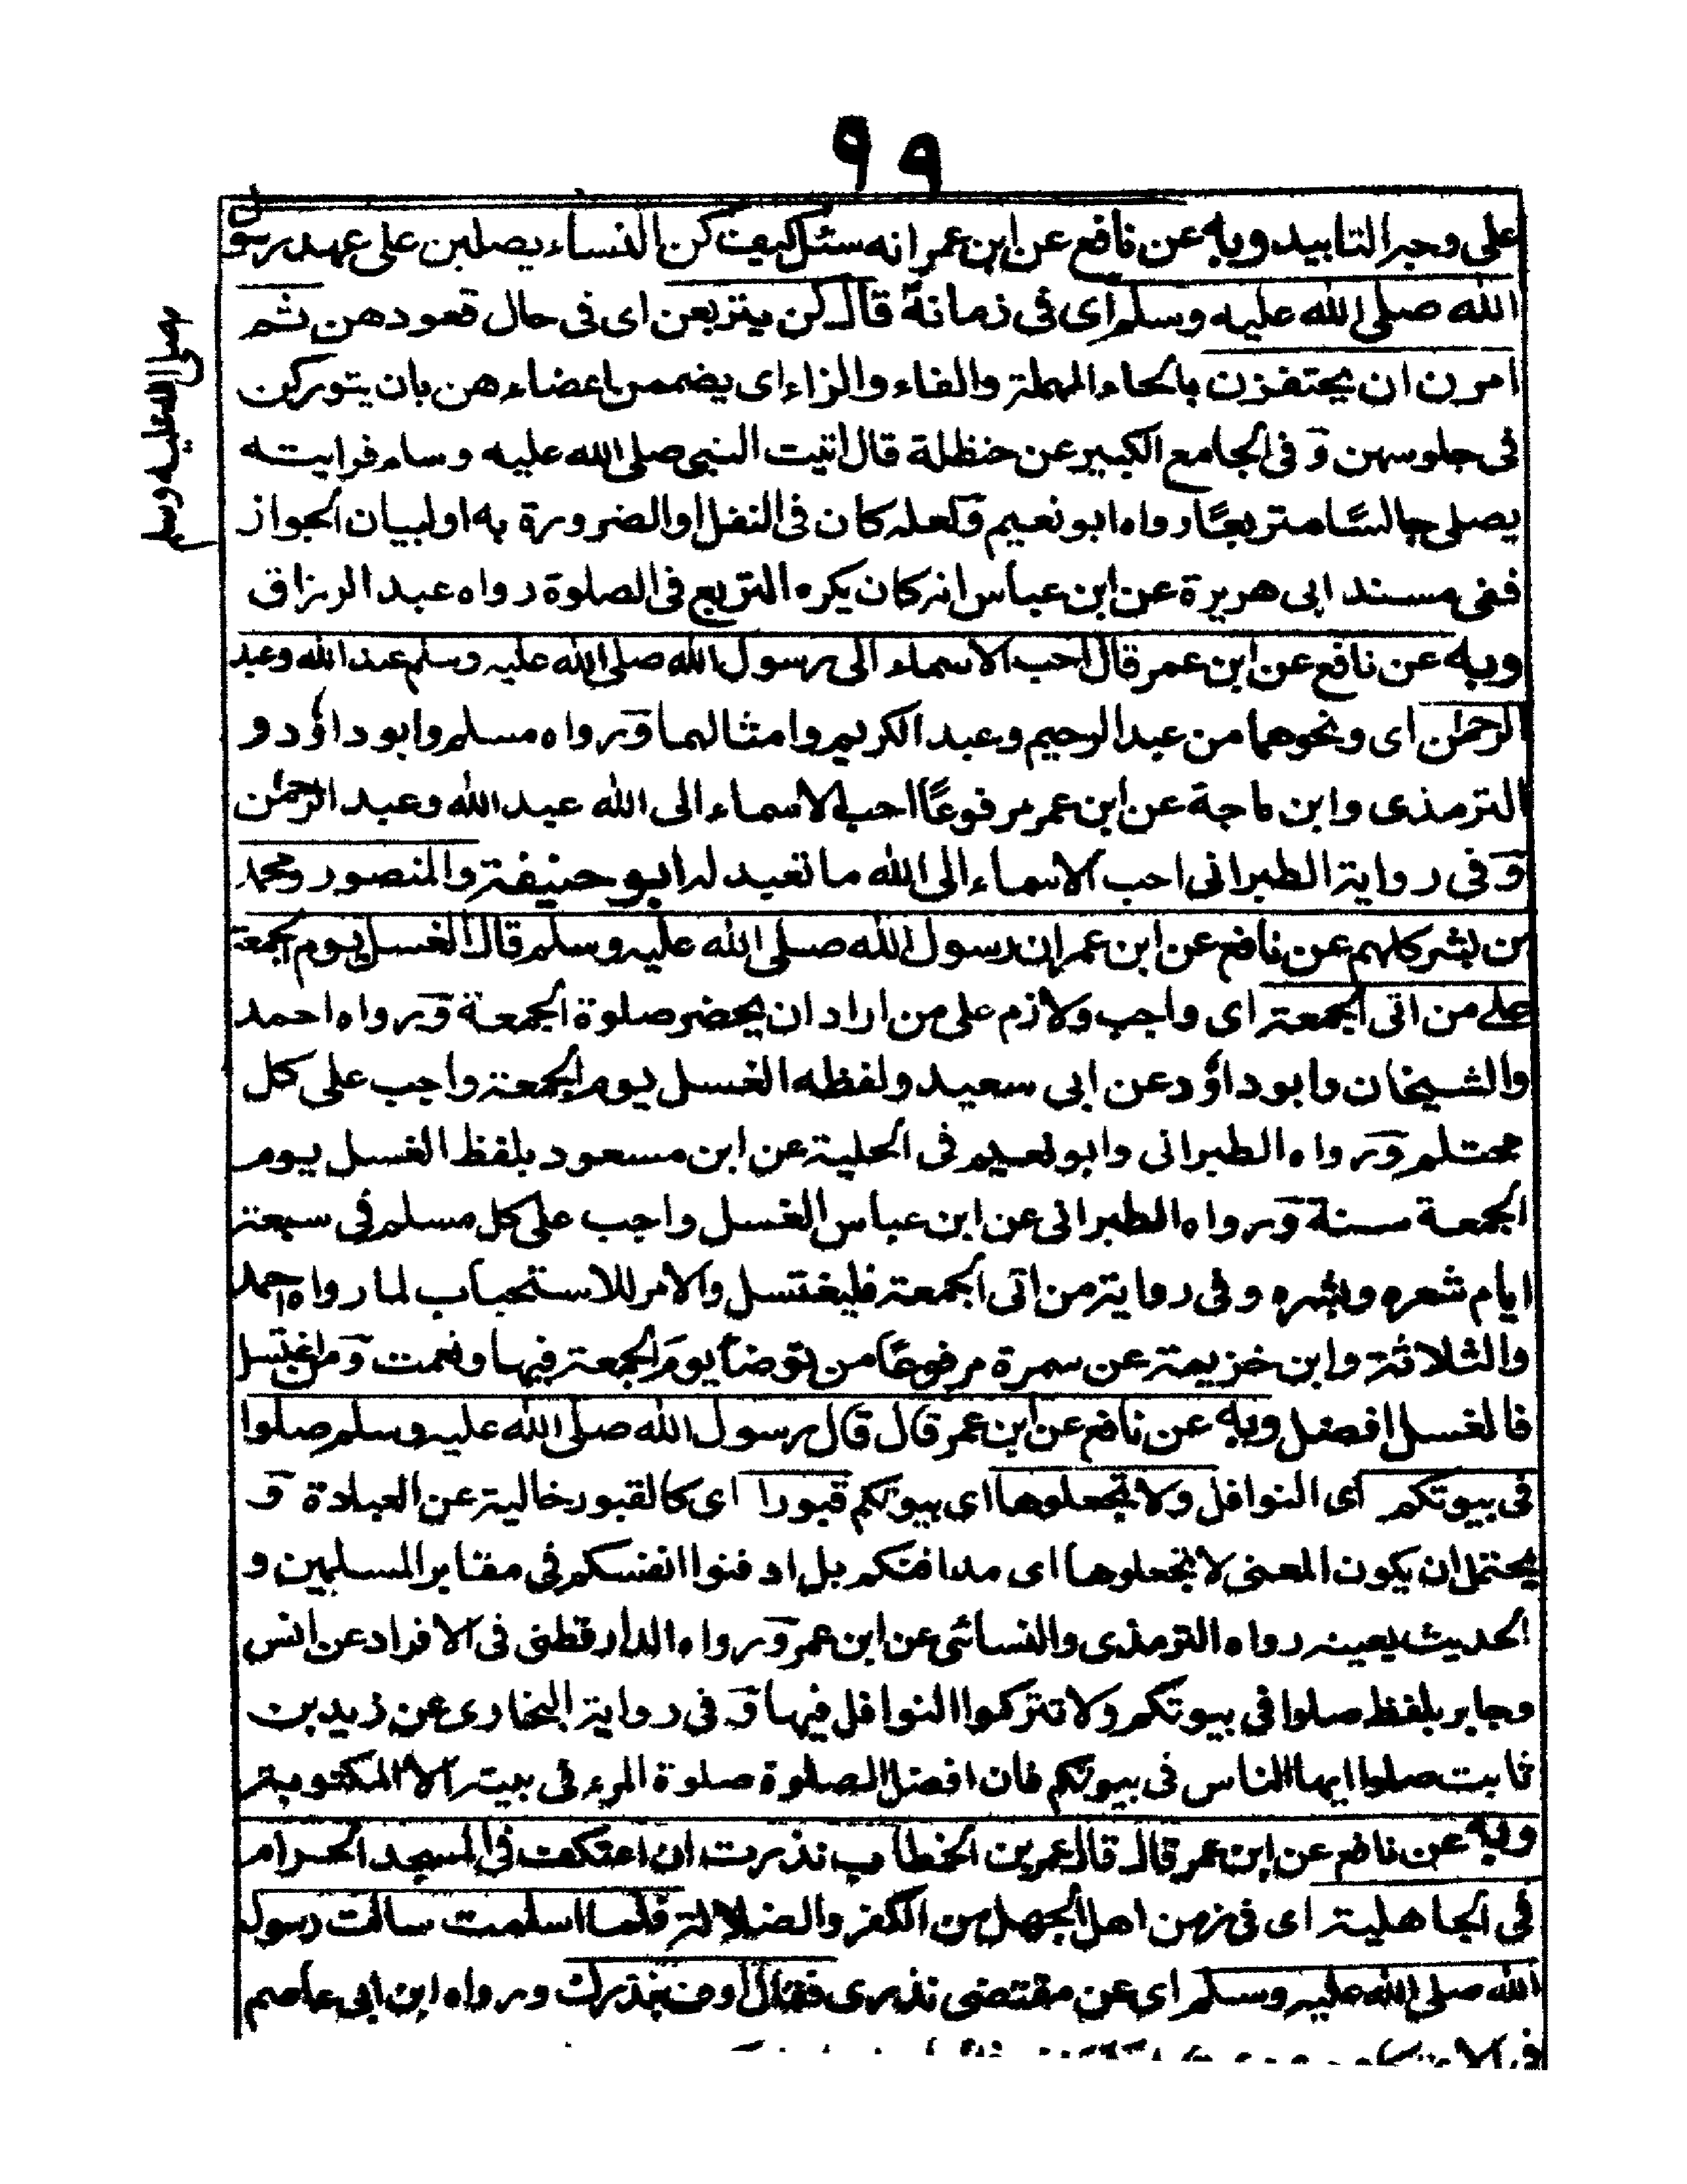 ٩٩
على وجه التابيد وبه عن نافع عن ابن عمر انه سئل كيف كن النساء يصلين على عهد رسول
الله صلى الله عليه وسلم اى فى زمانة قال كن يتربعن اى فى حال قعودهن ثم
امرن ان يحتفزن بالحاء المهملة والفاء والزاء اى يضممن اعضاءهن بان يتوركن
فى جلوسهن وفى الجامع الكبير عن حنظلة قال اتيت النبى صلى الله عليه وسلم فرايته
يصلى جالسًا متربعًا رواه ابو نعيم ولعله كان فى النفل او الضرورة به او لبيان الجواز
ففى مسند ابى هريرة عن ابن عباس انه كان يكره التربع فى الصلوة رواه عبد الرزاق
وبه عن نافع عن ابن عمر قال احب الاسماء الى رسول الله صلى الله عليه وسلم عبد الله وعبد
الرحمٰن اى ونحوهما من عبد الرحيم وعبد الكريم وامثالهما ورواه مسلم وابو داؤد و
الترمذى وابن ماجة عن ابن عمر مرفوعًا احب الاسماء الى الله عبد الله وعبد الرحمٰن
وفى رواية الطبرانى احب الاسماء الى الله ما تعبد له ابو حنيفة والمنصور ومحمد
بن بشر كلهم عن نافع عن ابن عمر ان رسول الله صلى الله عليه وسلم قال الغسل يوم الجمعة
على من اتى الجمعة اى واجب ولازم على من اراد ان يحضر صلوة الجمعة ورواه احمد
والشيخان وابو داؤد عن ابى سعيد ولفظه الغسل يوم الجمعة واجب على كل
محتلم ورواه الطبرانى وابو نعيم فى الحلية عن ابن مسعود بلفظ الغسل يوم
الجمعة سنة ورواه الطبرانى عن ابن عباس الغسل واجب على كل مسلم فى سبعة
ايام شعره وبشره وفى رواية من اتى الجمعة فليغتسل والامر للاستحباب لما رواه احمد
والثلاثة وابن خزيمة عن سمرة مرفوعًا من توضأ يوم الجمعة فبها ونعمت ومن اغتسل
فالغسل افضل وبه عن نافع عن ابن عمر قال قال رسول الله صلى الله عليه وسلم صلوا
فى بيوتكم اى النوافل ولا تجعلوها اى بيوتكم قبورا اى كالقبور خالية عن العبادة و
يحتمل ان يكون المعنى لا تجعلوها اى مدافنكم بل ادفنوا انفسكم فى مقابر المسلمين و
الحديث بعينه رواه الترمذى والنسائى عن ابن عمر ورواه الدارقطنى فى الافراد عن انس
وجابر بلفظ صلوا فى بيوتكم ولا تتركوا النوافل فيها وفى رواية البخارى عن زيد بن
ثابت صلوا ايها الناس فى بيوتكم فان افضل الصلوة صلوة المرء فى بيته الا المكتوبة
وبه عن نافع عن ابن عمر قال قال عمر بن الخطاب نذرت ان اعتكف فى المسجد الحرام
فى الجاهلية اى فى زمن اهل الجهل من الكفر والضلالة فلما اسلمت سالت رسول
الله صلى الله عليه وسلم اى عن مقتضى نذرى فقال اوف بنذرك ورواه ابن ابى عاصم
صلى الله عليه وسلم